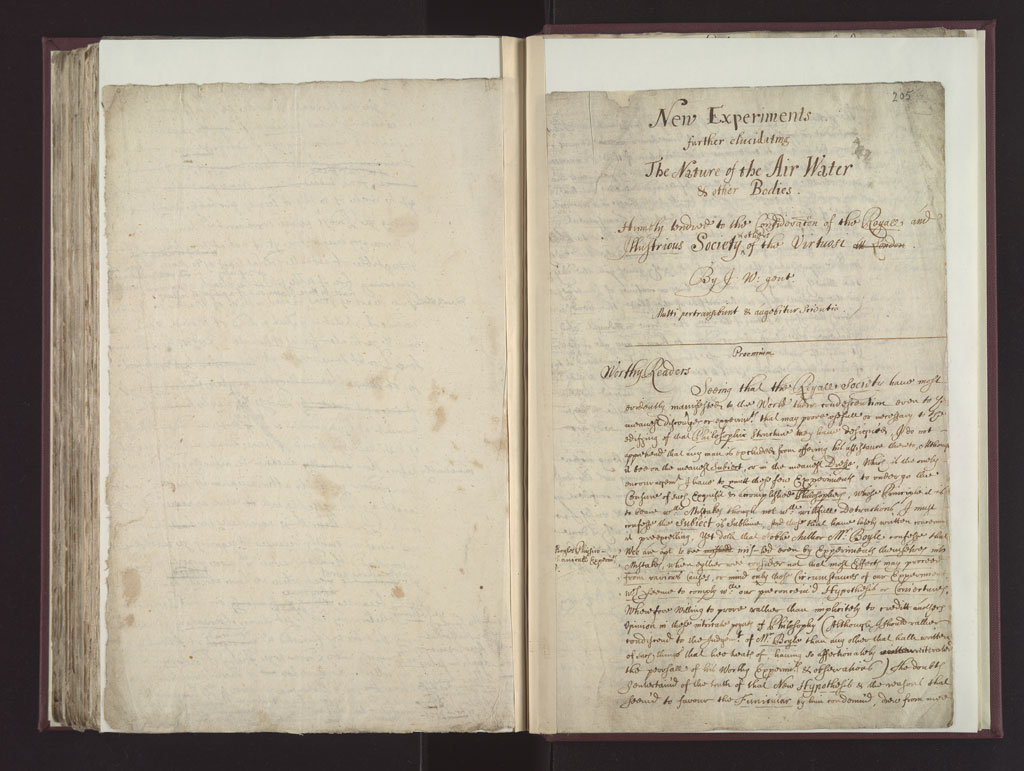 205
New Experiments
further elucidating
The Nature of the Air Water
& other Bodies.
Humbly to the Consideration of the Royall and
Illustrious Society of the Virtuosi London
By J W: gent
Multi pertransibunt & augebitur Scientia.
Proemium
Worthy Readers
Seeing that the Royall Society have most
evidently to the World their condescention even to
meanest or that may prove usefull or necessary to
edifying of that Philosophic Structure they have designed, I do not
apprehend that any man is excluded from offering his assistance thereto, Although
it bee on the meanest Subject, or in the meanest Dress, Which is the onely
I have to these few Experiments to undergo the
Censure of such Exquisite & accomplished Philosophers, whose Principle it is
to beare wth Mistakes though not wth willfull I must
confess the Subject is Sublime, and those that have lately written
it Yet doth that noble Author Mr. Boyle confess that
Wee are not to be mis-led even by Experiments themselves into
Mistakes, when either wee consider not that most Effects may proceed
from various Causes, or mind only those Circumstances of our Experiment
wch seeme to comply wth our preconceiv'd Hypothesis or Conjectures.
Wherefore Willing to prove rather than implicitely to credit
Opinion in these intricate of Philosophy (Although I should rather
condescend to the of Mr. Boyle than any other that hath written
of such things that hee of having so affectionately
the perusall of his Worthy Experimts & observations) The doubts
I entertain'd of the truth of that New Hypothesis & the reasons that
seem'd to favour the Funicular by him condemn'd, drew from mee